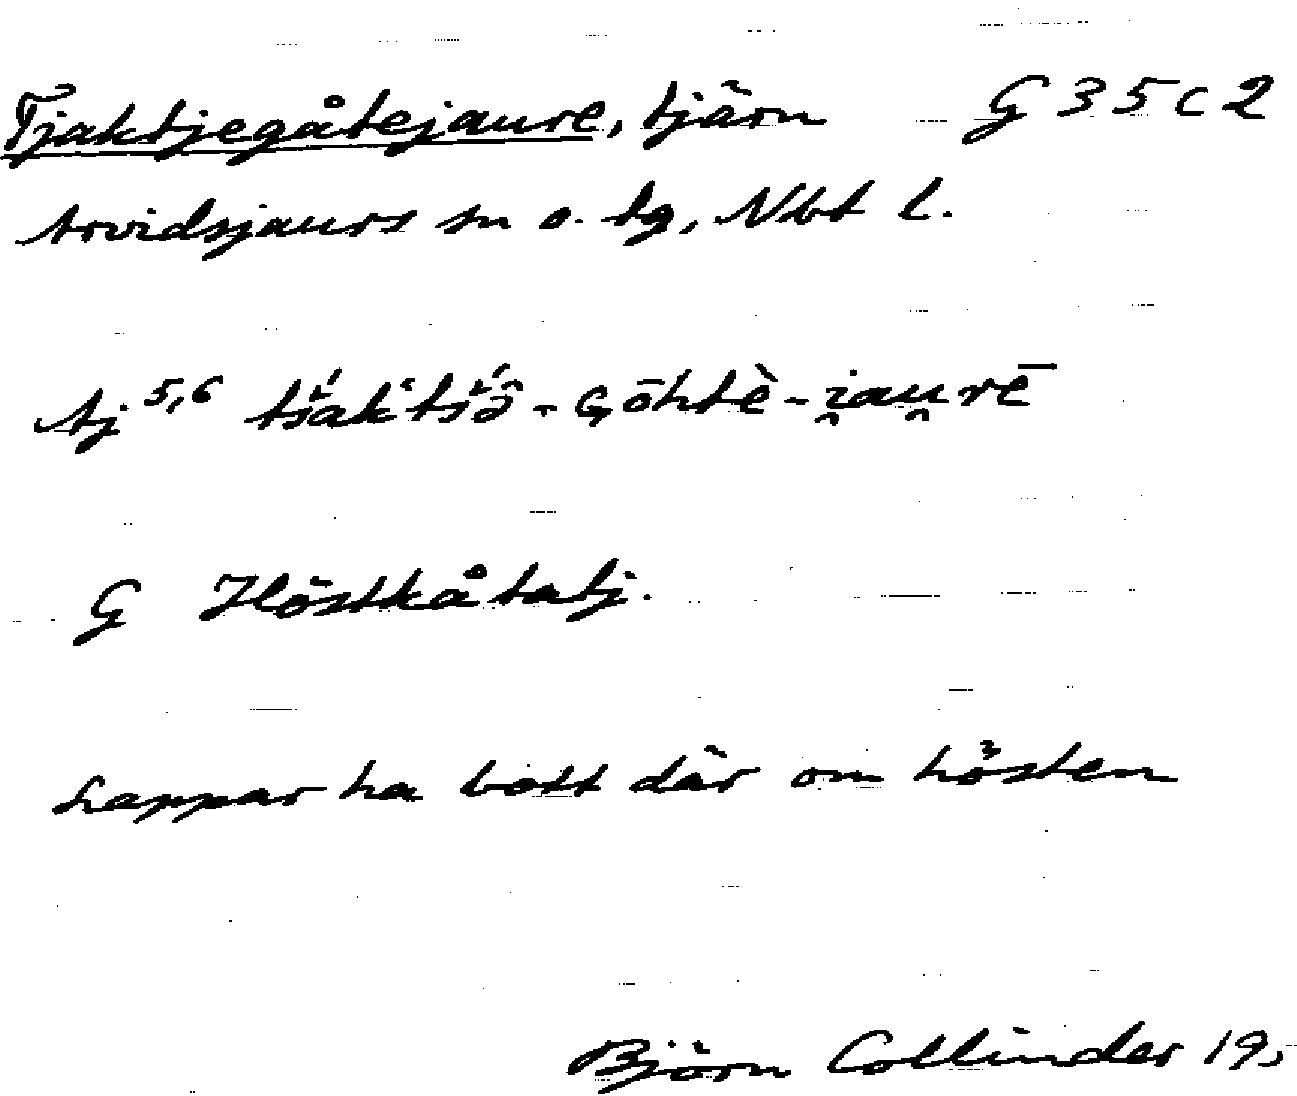 Tjaktjegåtejaure, tjärn G 35 c 2
Arvidsjaurs sn o. tg, Nbt l.
Aj 5,6
G Höstkåtatj.
Lappar ha bott där om hösten
Björn Collinder 19